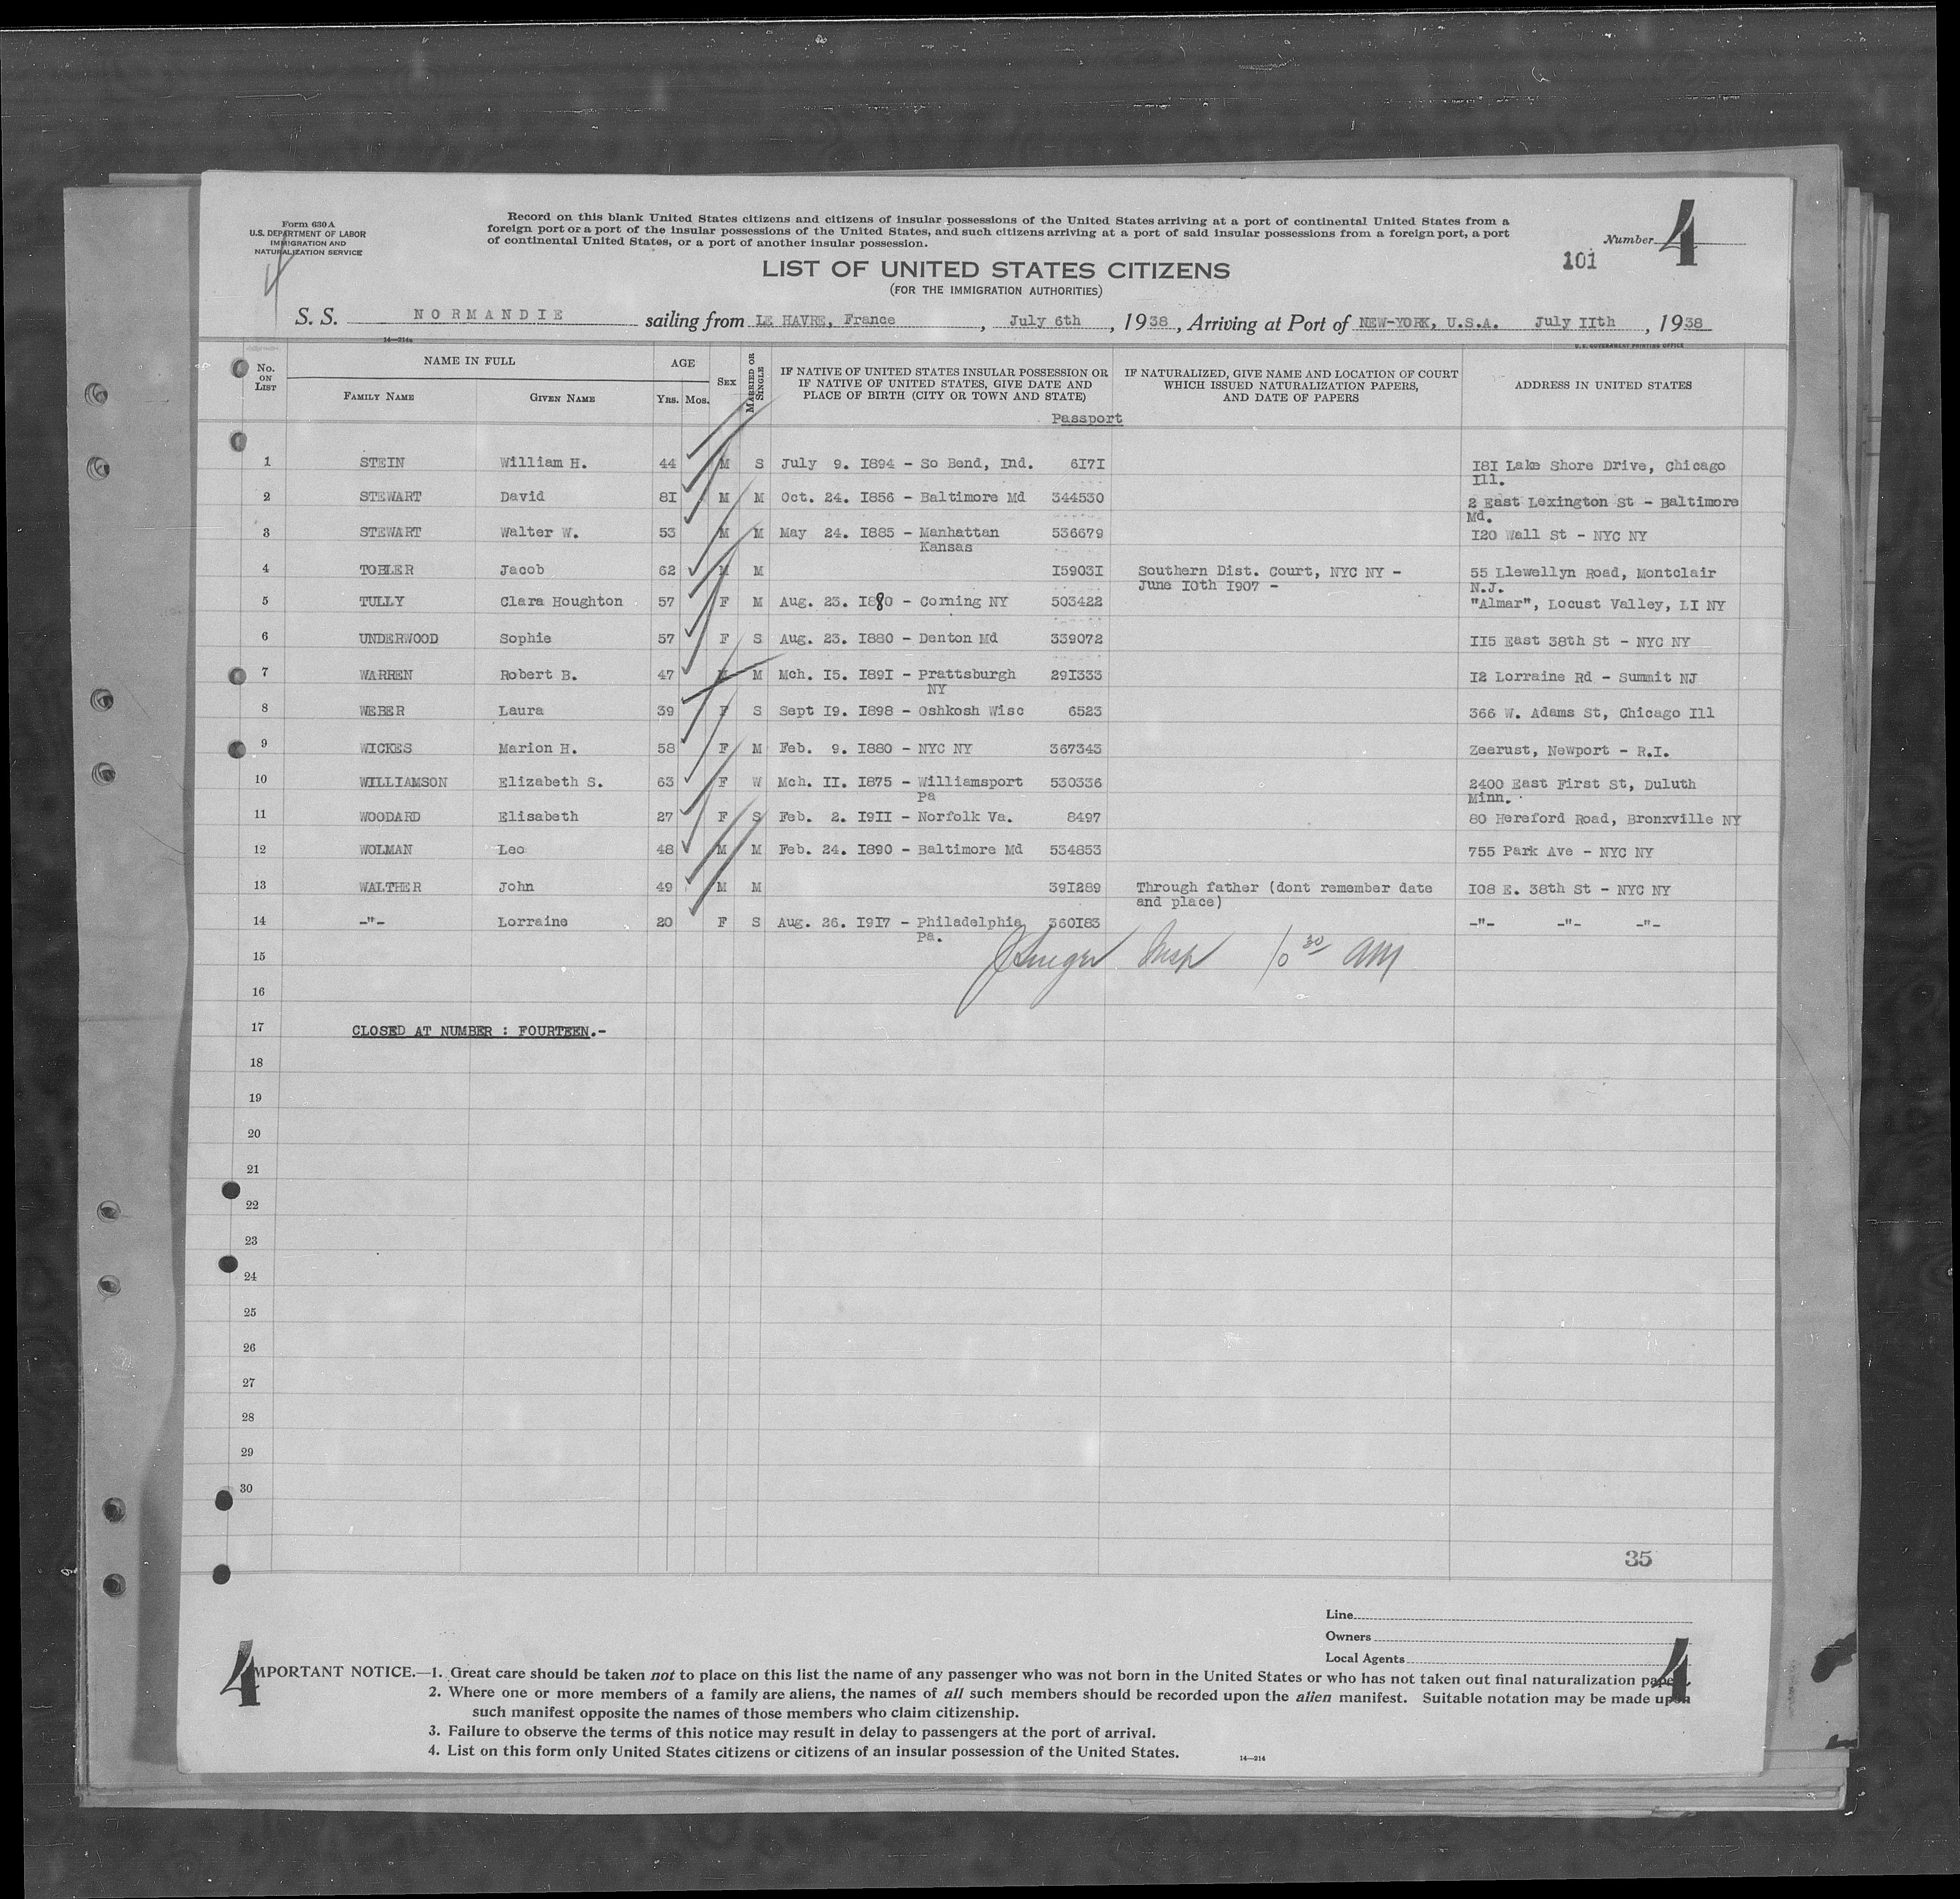 Form 630 A
U.S. DEPARTMENT OF LABOR
IMMIGRATION AND
NATURALIZATION SERVICE
Record on this blank United States citizens and citizens of insular possessions of the United States arriving at a port of continental United States from a
foreign port or a port of the insular possessions of the United States, and such citizens arriving at a port of said insular possessions from a foreign port, a port
of continental United States, or a port of another insular possession.
Number 4
101
LIST OF UNITED STATES CITIZENS
(FOR THE IMMIGRATION AUTHORITIES)
S. S. NORMANDIE sailing from LE HAVRE, France, July 6th, 1938, Arriving at Port of NEW-YORK, U.S.A. July IIth, 1938
14—214a
U.S. GOVERNMENT PRINTING OFFICE
No. ON LIST
NAME IN FULL
FAMILY NAME GIVEN NAME
AGE
YRS. MOS.
SEX
MARRIED OR SINGLE
IF NATIVE OF UNITED STATES INSULAR POSSESSION OR
IF NATIVE OF UNITED STATES, GIVE DATE AND
PLACE OF BIRTH (CITY OR TOWN AND STATE)
IF NATURALIZED, GIVE NAME AND LOCATION OF COURT
WHICH ISSUED NATURALIZATION PAPERS,
AND DATE OF PAPERS
ADDRESS IN UNITED STATES
Passport
1 STEIN William H. 44 M S July 9. I894 - So Bend, Ind. 6I7I I8I Lake Shore Drive, Chicago
Ill.
2 STEWART David 8I M M Oct. 24. I856 - Baltimore Md 344530 2 East Lexington St - Baltimore
Md.
3 STEWART Walter W. 53 M M May 24. I885 - Manhattan 536679 I20 Wall St - NYC NY
Kansas
4 TOBLER Jacob 62 M M I5903I Southern Dist. Court, NYC NY - 55 Llewellyn Road, Montclair
June IOth I907 - N.J.
5 TULLY Clara Houghton 57 F M Aug. 23. I880 - Corning NY 503422 "Almar", Locust Valley, LI NY
6 UNDERWOOD Sophie 57 F S Aug. 23. I880 - Denton Md 339072 II5 East 38th St - NYC NY
7 WARREN Robert B. 47 M M Mch. I5. I89I - Prattsburgh 29I333 I2 Lorraine Rd - Summit NJ
NY
8 WEBER Laura 39 F S Sept I9. I898 - Oshkosh Wisc 6523 366 W. Adams St, Chicago Ill
9 WICKES Marion H. 58 F M Feb. 9. I880 - NYC NY 367343 Zeerust, Newport - R.I.
10 WILLIAMSON Elizabeth S. 63 F W Mch. II. I875 - Williamsport 530336 2400 East First St, Duluth
Pa Minn.
11 WOODARD Elisabeth 27 F S Feb. 2. I9II - Norfolk Va. 8497 80 Hereford Road, Bronxville NY
12 WOLMAN Leo 48 M M Feb. 24. I890 - Baltimore Md 534853 755 Park Ave - NYC NY
13 WALTHER John 49 M M 39I289 Through father (dont remember date I08 E. 38th St - NYC NY
and place)
14 -"- Lorraine 20 F S Aug. 26. I9I7 - Philadelphia 360I83 -"- -"- -"-
Pa.
15 Insp 10 30 AM
16
17 CLOSED AT NUMBER : FOURTEEN.-
18
19
20
21
22
23
24
25
26
27
28
29
30
35
Line
Owners
Local Agents
4 4
IMPORTANT NOTICE.—1. Great care should be taken not to place on this list the name of any passenger who was not born in the United States or who has not taken out final naturalization papers.
2. Where one or more members of a family are aliens, the names of all such members should be recorded upon the alien manifest. Suitable notation may be made upon
such manifest opposite the names of those members who claim citizenship.
3. Failure to observe the terms of this notice may result in delay to passengers at the port of arrival.
4. List on this form only United States citizens or citizens of an insular possession of the United States.
14—214